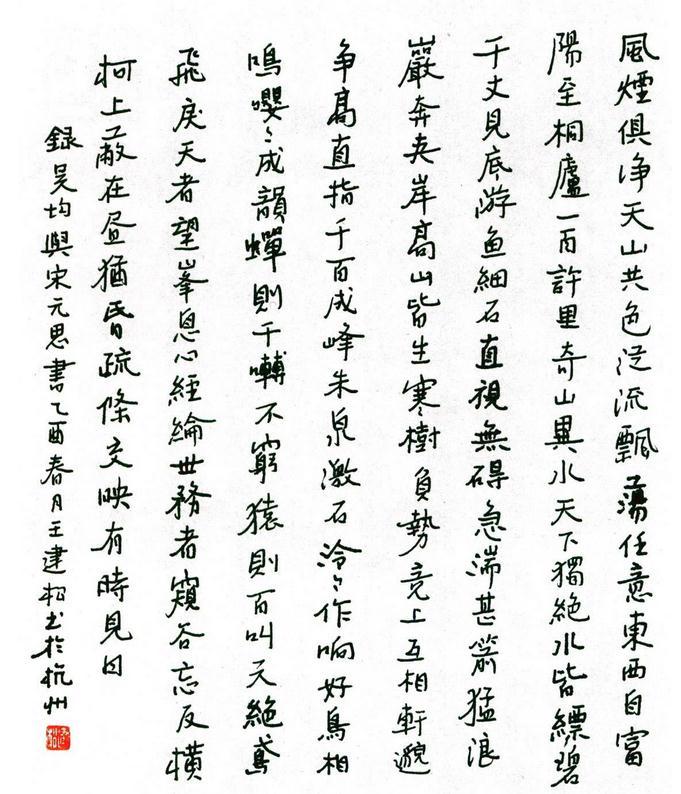 風煙俱浄天山共色従流飄蕩任意東西自富
陽至桐廬一百許里奇山異水天下獨絕水皆縹碧
千丈見底游鱼細石直視無碍急湍甚箭猛浪
巖奔夹岸高山皆生寒樹負勢竞上互相軒邈
争高直指千百成峰朱泉激石泠〻作响好鳥相
鳴嚶〻成韻蟬則千囀不窮猿則百叫无絕鳶
飛戾天者望峯息心經綸世務者窺谷忘反横
柯上蔽在昼猶昏疏條交映有時見日
録吴均與宋元思書乙酉春月王建松书於杭州